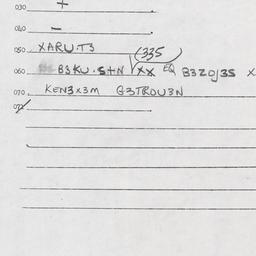 030. +
040 —
050. XARU.T3 (335)
060 B3KU.S+N √XX EQ B3ZOJ3S X
070. KEN3X3M G3TROU3N
072